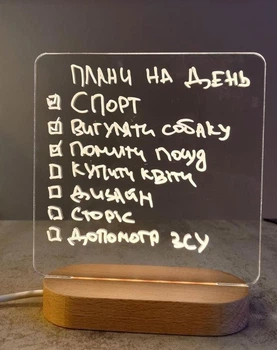 ПЛАНИ НА ДЕНЬ
СПОРТ
ВИГУЛЯТИ СОБАКУ
ПОМИТИ ПОСУД
КУПИТИ КВІТИ
ДИЗАЙН
СТОРІС
ДОПОМОГА ЗСУ